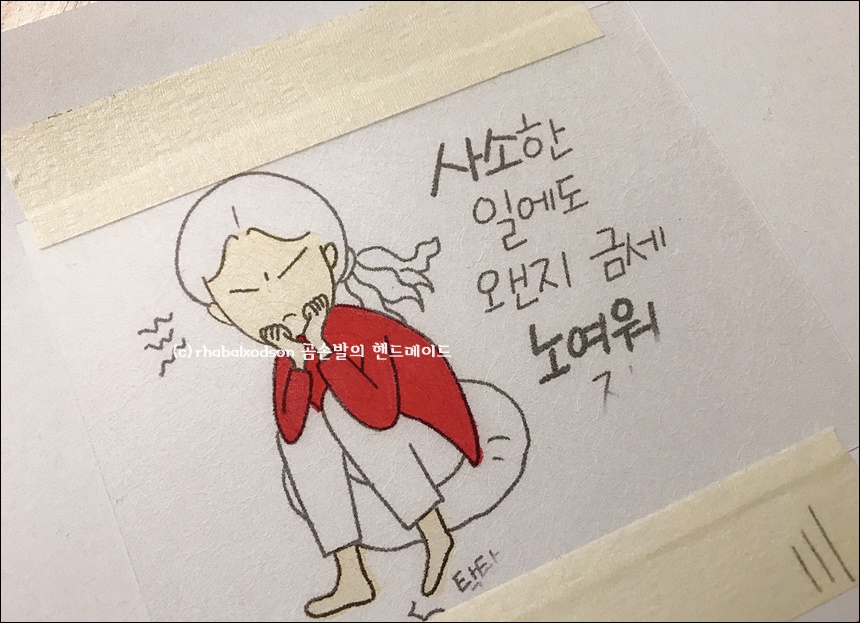 사소한
일에도
왠지 금세
노여워
지
(c)rhabalxodson 곰손발의 핸드메이드
탁탁